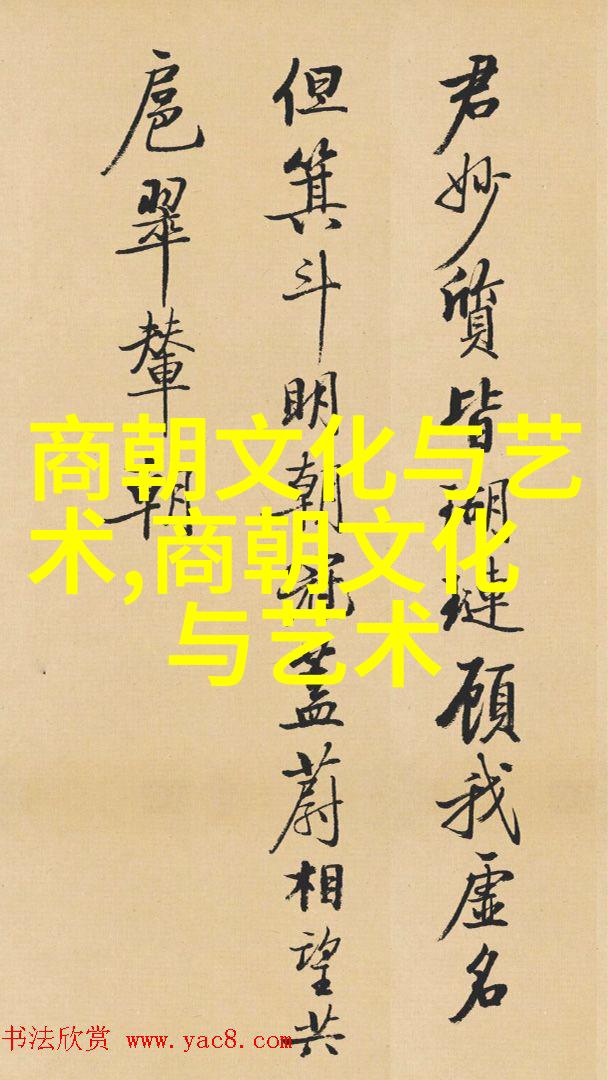 君妙質皆瑚璉顧我虚名
但箕斗明朝冠蓋蔚相望共
扈翠輦朝
商朝文化与艺
术,商朝文化
与艺术
书法欣赏 www.yac8.com